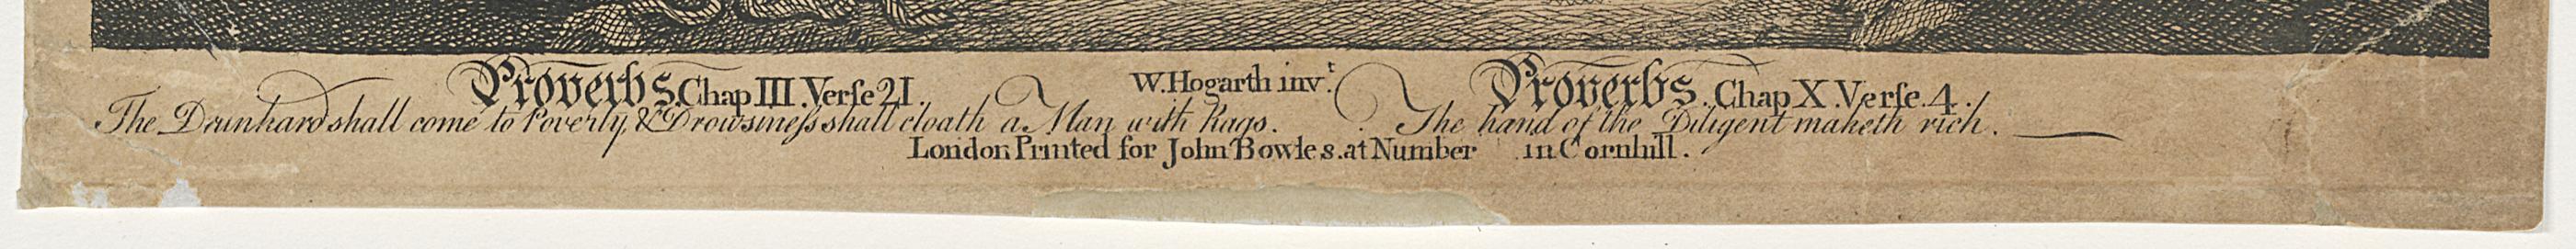 Proverbs. Chap III. Verſe 21.
The Drunkard shall come to Poverty, & Drowsineſs shall cloath a Man with Rags.
W. Hogarth invᵗ.
Proverbs. Chap X. Verſe. 4.
The hand of the Diligent maketh rich.
London Printed for John Bowles. at Number in Cornhill.